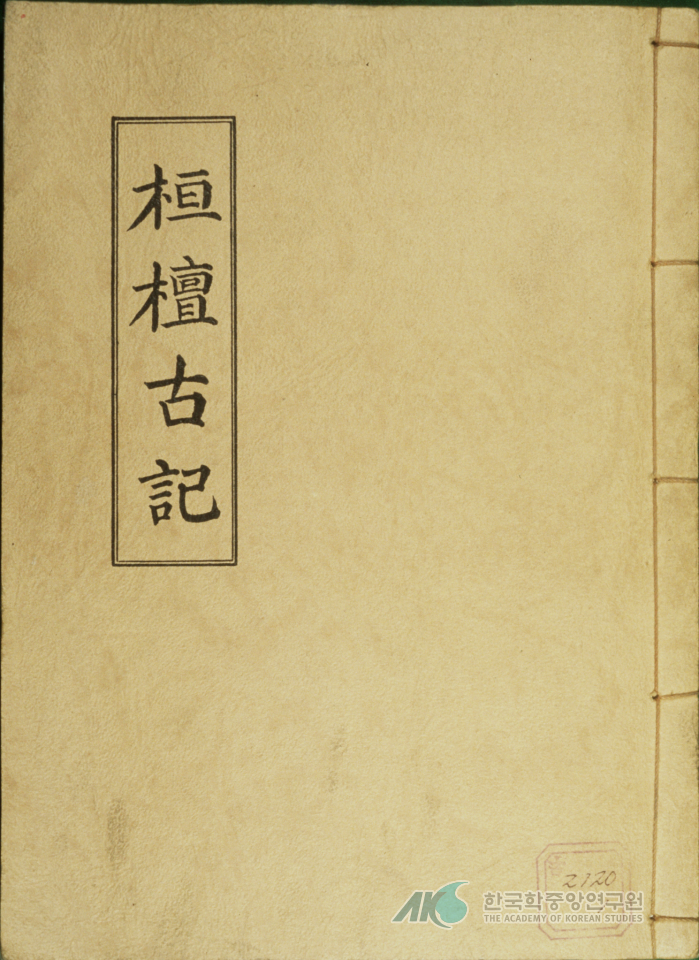 桓檀古記
2120
AKS 한국학중앙연구원
THE ACADEMY OF KOREAN STUDIES